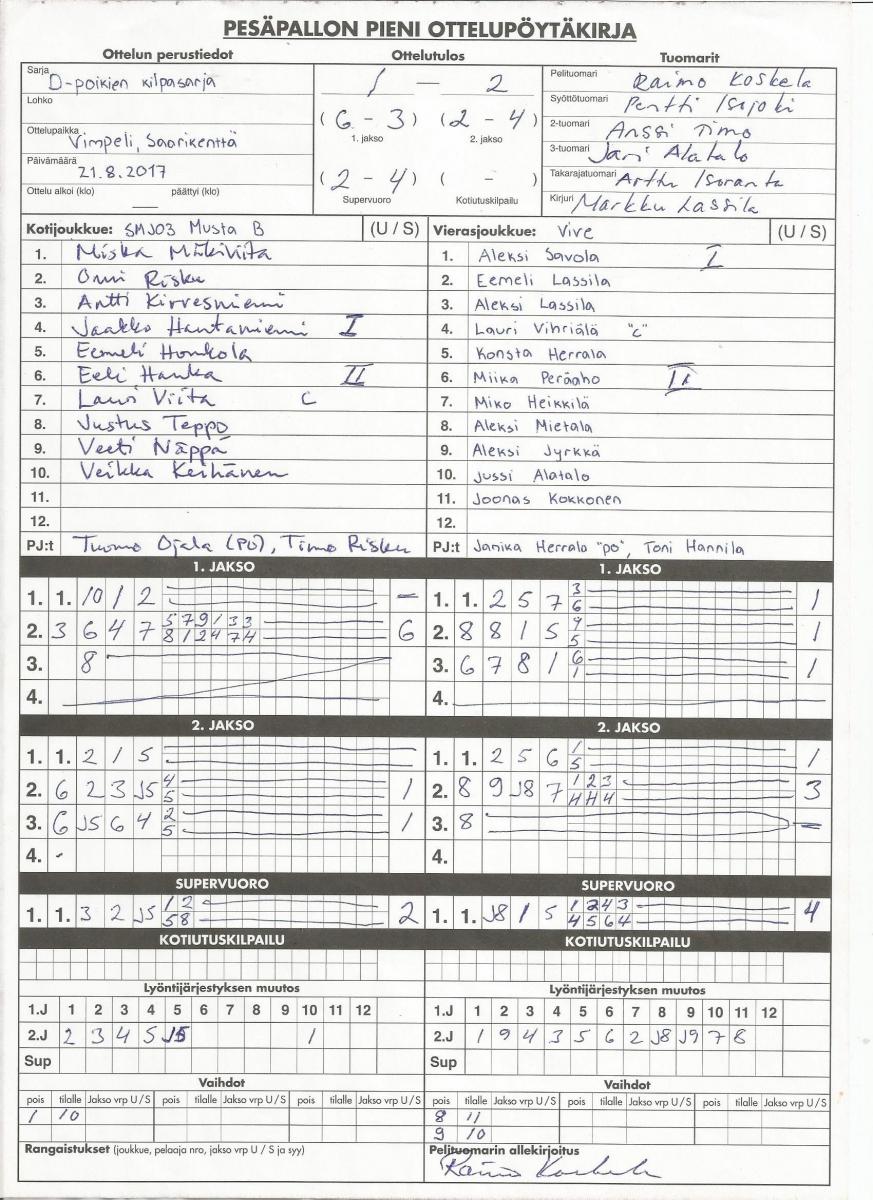 PESÄPALLON PIENI OTTELUPÖYTÄKIRJA
Ottelun perustiedot Ottelutulos Tuomarit
Sarja D-poikien kilpasarja
Lohko
Ottelupaikka Vimpeli, Saarikenttä
Päivämäärä 21.8.2017
Ottelu alkoi (klo) päättyi (klo)
1 — 2
(6 - 3) (2 - 4)
1. jakso 2. jakso
(2 - 4) ( - )
Supervuoro Kotiutuskilpailu
Pelituomari Raimo Koskela
Syöttötuomari Pentti Isojoki
2-tuomari Anssi Timo
3-tuomari Jari Alatalo
Takarajatuomari Arttu Isoranta
Kirjuri Markku Lassila
Kotijoukkue: SMJ03 Musta B (U / S)
1. Miska Mäkiviita
2. Onni Risku
3. Antti Kirvesniemi
4. Jaakko Hautaniemi I
5. Eemeli Honkola
6. Eeli Hanka II
7. Lauri Viita C
8. Justus Teppo
9. Veeti Näppä
10. Veikka Keihänen
11.
12.
PJ:t Tuomo Ojala (PO), Timo Risku
Vierasjoukkue: Vive (U / S)
1. Aleksi Savola I
2. Eemeli Lassila
3. Aleksi Lassila
4. Lauri Vihriälä "c"
5. Konsta Herrala
6. Miika Peräaho II
7. Miko Heikkilä
8. Aleksi Mietala
9. Aleksi Jyrkkä
10. Jussi Alatalo
11. Joonas Kokkonen
12.
PJ:t Janika Herrala "po", Toni Hannila
1. JAKSO
1. 1. 10 1 2 –
2. 3 6 4 7 5 7 9 1 3 3 6
8 1 2 4 7 4
3. 8
4.
1. JAKSO
1. 1. 2 5 7 3 1
6
2. 8 8 1 5 9 1
5
3. 6 7 8 1 6 1
1
4.
2. JAKSO
1. 1. 2 1 5
2. 6 2 3 J5 4 1
5
3. 6 J5 6 4 2 1
5
4. -
2. JAKSO
1. 1. 2 5 6 1 1
5
2. 8 9 J8 7 1 2 3 3
H H 4
3. 8 –
4.
SUPERVUORO
1. 1. 3 2 J5 1 2 2
5 8
SUPERVUORO
1. 1. J8 1 5 1 2 4 3 4
4 5 6 4
KOTIUTUSKILPAILU
KOTIUTUSKILPAILU
Lyöntijärjestyksen muutos
1.J 1 2 3 4 5 6 7 8 9 10 11 12
2.J 2 3 4 5 J5 1
Sup
Lyöntijärjestyksen muutos
1.J 1 2 3 4 5 6 7 8 9 10 11 12
2.J 1 9 4 3 5 6 2 J8 J9 7 8
Sup
Vaihdot
pois tilalle Jakso vrp U / S pois tilalle Jakso vrp U / S pois tilalle Jakso vrp U / S
1 10
Vaihdot
pois tilalle Jakso vrp U / S pois tilalle Jakso vrp U / S pois tilalle Jakso vrp U / S
8 11
9 10
Rangaistukset (joukkue, pelaaja nro, jakso vrp U / S ja syy)
Pelituomarin allekirjoitus
Raimo Koskela